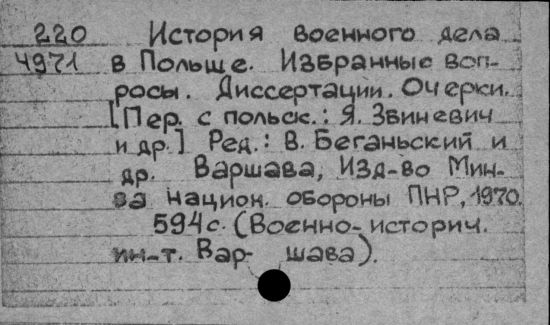 220 История военного дела
4971 в Польше. Избранные воп-
росы. Диссертации. Очерки.
[Пер. с польск.: Я. Звиневич
и др.] Ред.: В. Беганьский и
др. Варшава, Изд-во Мин-
ва национ. обороны ПНР, 1970.
594с. (Военно-историч.
ин-т. Вар- шава).